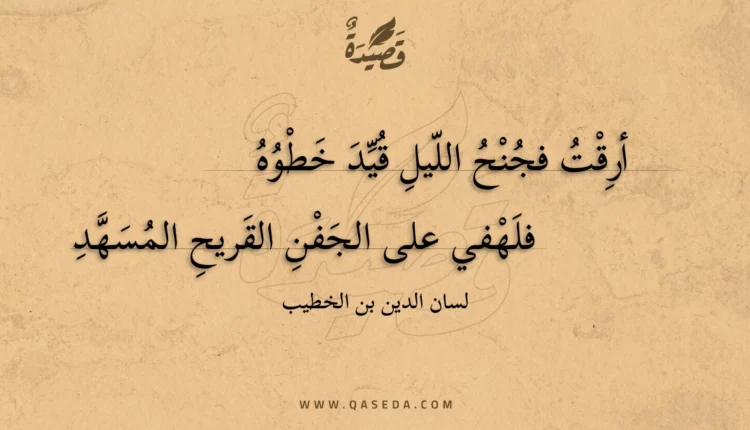 قَصِيْدَةٌ
أرِقْتُ فجُنْحُ اللّيلِ قُيِّدَ خَطْوُهُ
فلَهْفي على الجَفْنِ القَريحِ المُسَهَّدِ
لسان الدين بن الخطيب
WWW.QASEDA.COM